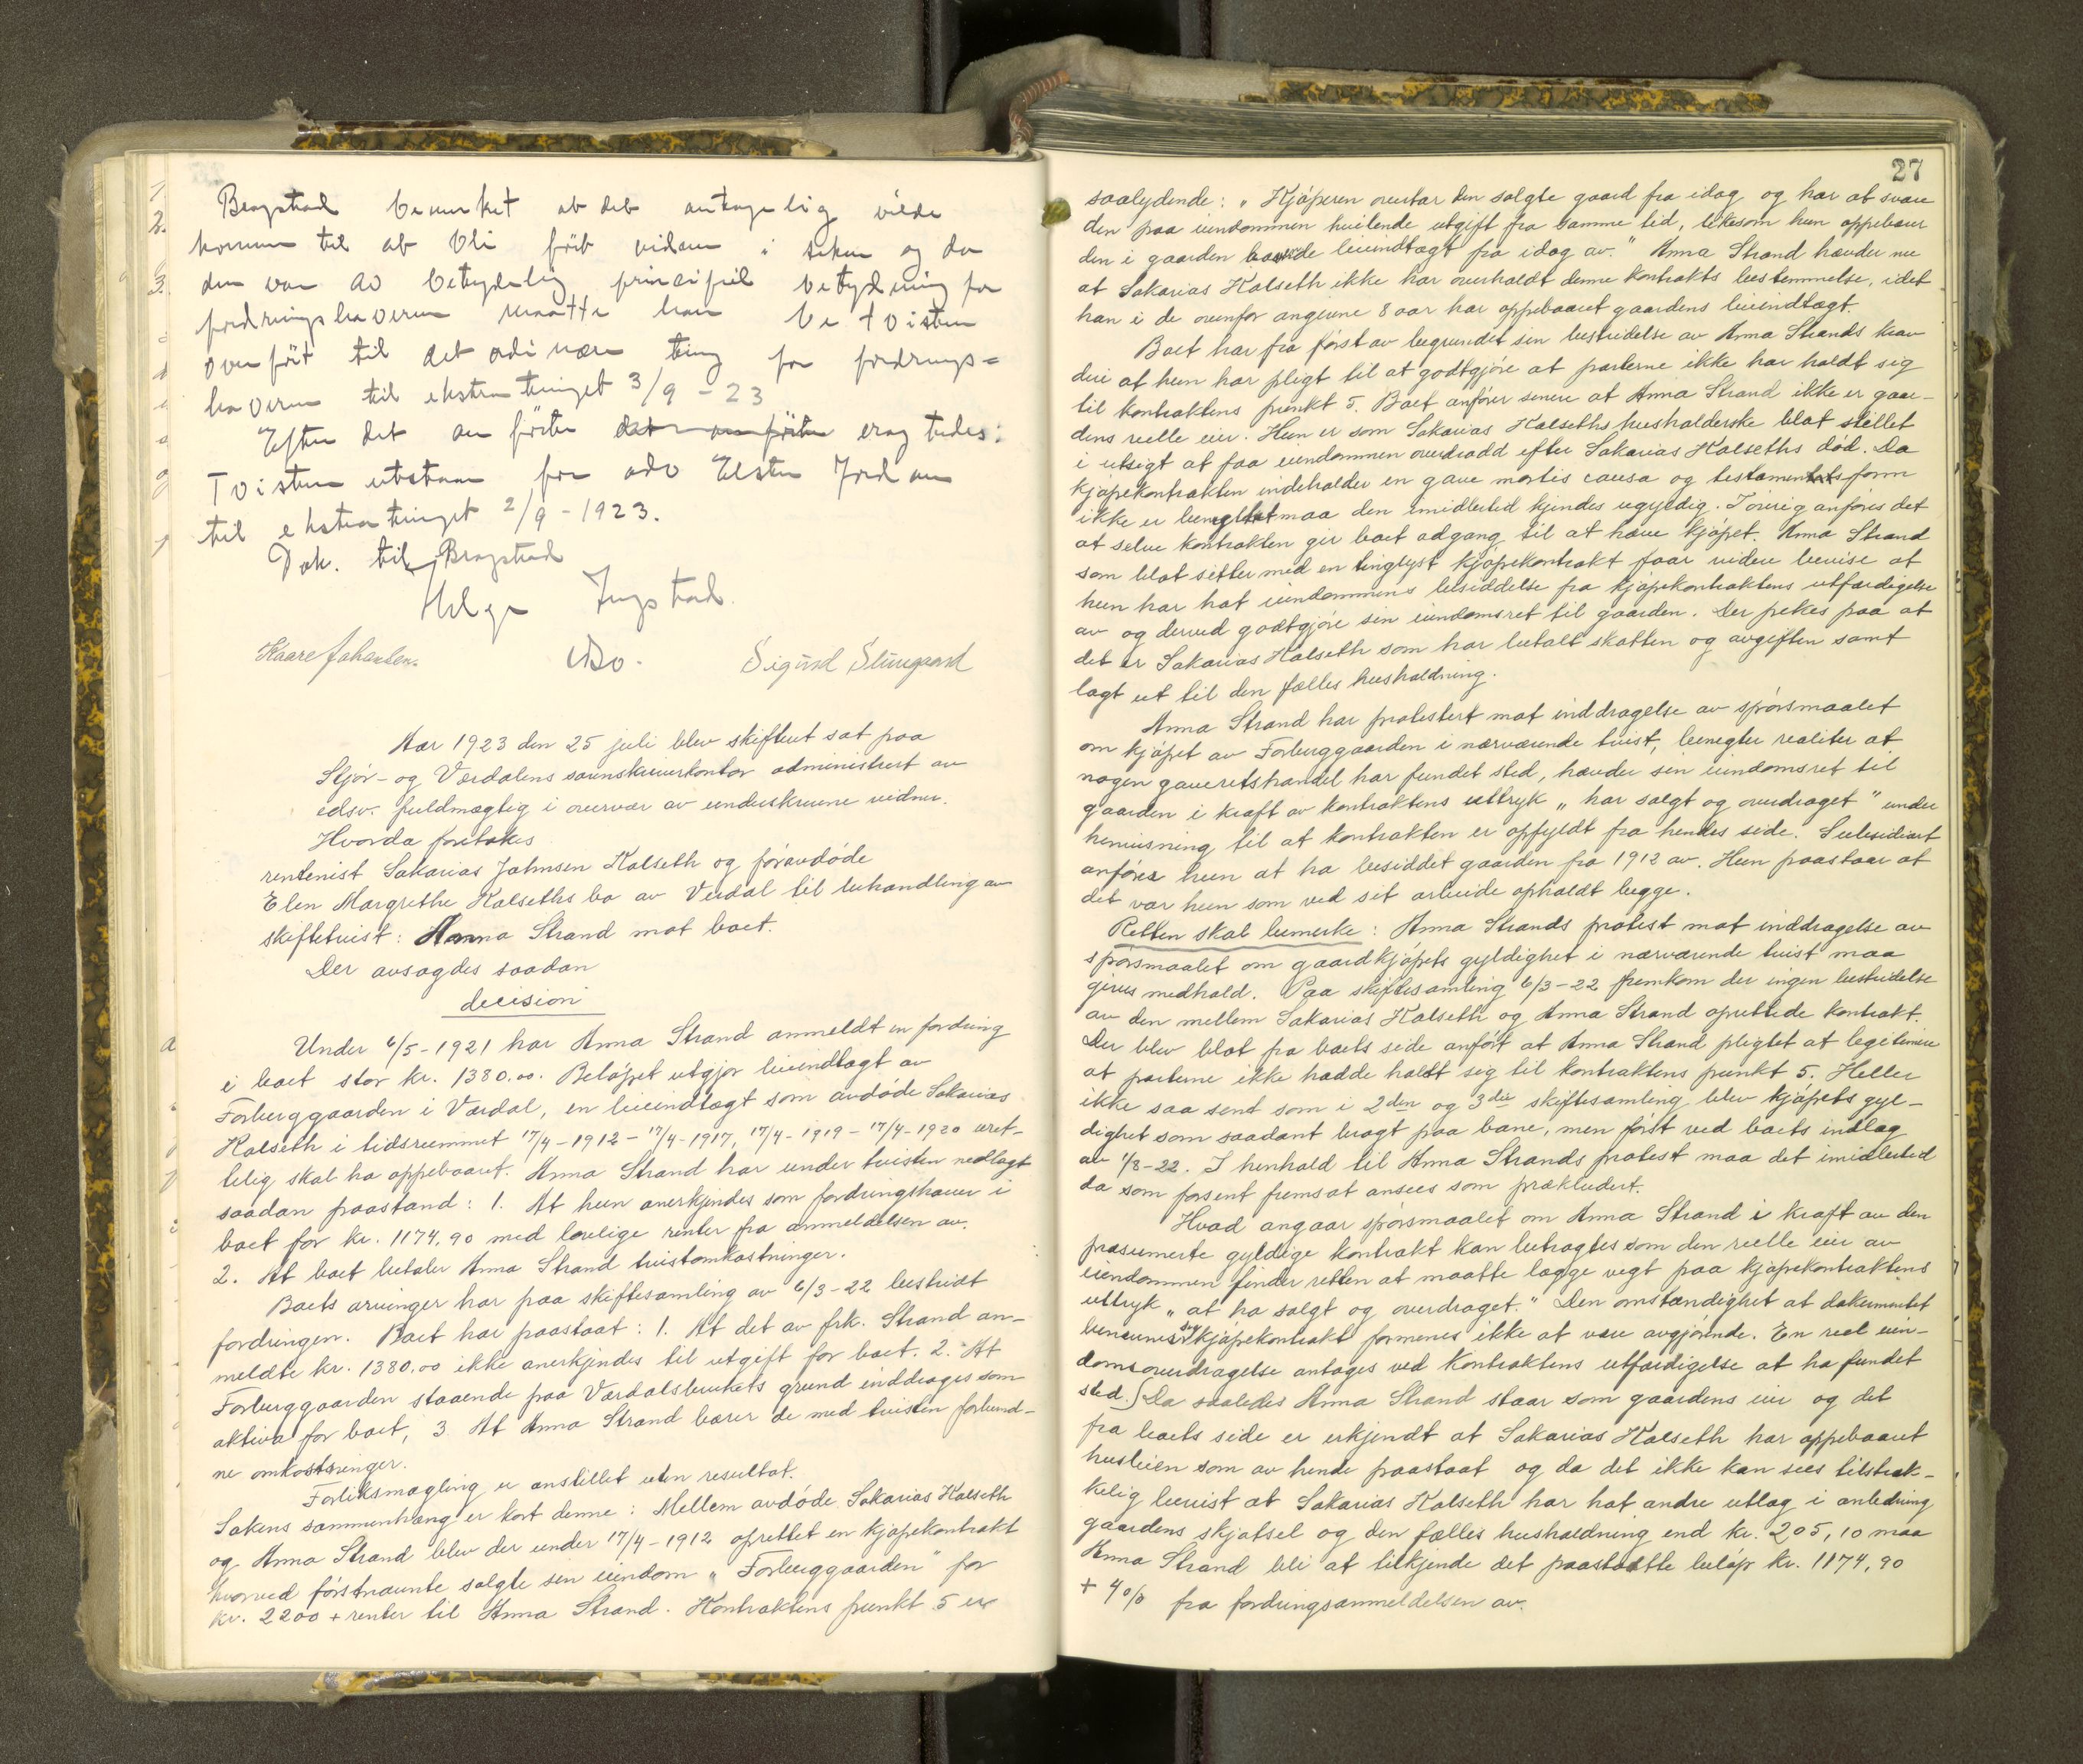 Bragstad bemerket at det antagelig vilde
komme til at bli ført vidner i saken og da
den var av betydelig principiel betydning for
fordringshaveren maatte han be tvisten
overført til det ordinære ting for fordrings-
haveren til ekstratinget 3/9 - 23
Efter det anførte det anførte eragtedes:
Tvisten utstaar for adv Elster Jordan
til ekstratinget 2/9 - 1923.
Dok. til Bragstad
Helge Ingstad.
Kaare Johansen. Bo. Sigurd Stuugaard
Aar 1923 den 25 juli blev skifteret sat paa
Stjør- og Værdalens sorenskriverkontor administrert av
edsv. fuldmægtig i overvær av underskrevne vidner.
Hvorda foretokes
rentenist Sakarias Johnsen Kalseth og foravdøde
Elen Margrethe Kalseths bo av Verdal til behandling av
skiftetvist: Anna Strand mot boet.
Der avsagdes saadan
decision
Under 6/5 - 1921 har Anna Strand anmeldt en fordring
i boet stor kr. 1380.00. Beløpet utgjør leieindtægt av
Forberggaarden i Værdal, en leieindtægt som avdøde Sakarias
Kalseth i tidsrummet 17/4 - 1912 - 17/4 - 1917, 17/4 - 1919 - 17/4 - 1920 uret-
telig skal ha oppebaaret. Anna Strand har under tvisten nedlagt
saadan paastand: 1. At hun anerkjendes som fordringshaver i
boet for kr. 1174.90 med lovlige renter fra anmeldelsen av.
2. At boet betaler Anna Strand tvistomkostninger.
Boets arvinger har paa skiftesamling av 6/3 - 22 bestridt
fordringen. Boet har paastaat: 1. At det av frk. Strand an-
meldte kr. 1380.00 ikke anerkjendes til utgift for boet. 2. At
Forberggaarden staaende paa Værdalsbrukets grund inddrages som
aktiva for boet, 3. At Anna Strand bærer de med tvisten forbund-
ne omkostninger.
Forliksmægling er anstillet uten resultat.
Sakens sammenhæng er kort denne: Mellem avdøde Sakarias Kalseth
og Anna Strand blev der under 17/4 - 1912 oprettet en kjøpekontrakt
hvorved førstnævnte solgte sin eiendom „Forberggaarden" for
kr. 2200 + renter til Anna Strand. Kontraktens punkt 5 er
27
saalydende: „Kjøperen overtar den solgte gaard fra idag og har at svare
den paa eiendommen hvilende utgift fra samme tid, likesom hun oppebær
den i gaarden havende leieindtægt fra idag av." Anna Strand hævder nu
at Sakarias Kalseth ikke har overholdt denne kontrakts bestemmelse, idet
han i de ovenfor angivne 8 aar har oppebaaret gaardens leieindtægt.
Boet har fra først av begrundet sin bestridelse av Anna Strands krav
deri at hun har pligt til at godtgjøre at parterne ikke har holdt sig
til kontraktens punkt 5. Boet anfører senere at Anna Strand ikke er gaar-
dens reelle eier. Hun er som Sakarias Kalseths husholderske blot stillet
i utsigt at faa eiendommen overdradd efter Sakarias Kalseths død. Da
kjøpekontrakten indeholder en gave mortis causa og testamentsform
ikke er benyttet maa den imidlertid kjendes ugyldig. I øvrig anføres det
at selve kontrakten gir boet adgang til at hæve kjøpet. Anna Strand
som blot sitter med en tinglyst kjøpekontrakt faar videre bevise at
hun har hat eiendommens besiddelse fra kjøpekontraktens utfærdigelse
av og derved godtgjøre sin eiendomsret til gaarden. Der pekes paa at
det er Sakarias Kalseth som har betalt skatten og avgiften samt
lagt ut til den fælles husholdning.
Anna Strand har protestert mot inddragelse av spørsmaalet
om kjøpet av Forberggaarden i nærværende tvist, benegter realiter at
nogen gaveretshandel har fundet sted, hævder sin eiendomsret til
gaarden i kraft av kontraktens uttryk „har solgt og overdraget" under
henvisning til at kontrakten er opfyldt fra hendes side. Subsidiært
anfører hun at ha besiddet gaarden fra 1912 av. Hun paastaar at
det var hun som ved sit arbeide opholdt begge.
Retten skal bemerke: Anna Strands protest mot inddragelse av
spørsmaalet om gaardkjøpets gyldighet i nærværende tvist maa
gives medhold. Paa skiftesamling 6/3 - 22 fremkom der ingen bestridelse
av den mellem Sakarias Kalseth og Anna Strand oprettede kontrakt.
Der blev blot fra boets side anført at Anna Strand pligtet at legitimere
at parterne ikke hadde holdt seg til kontraktens punkt 5. Heller
ikke saa sent som i 2den og 3die skiftesamling blev kjøpets gyl-
dighet som saadant bragt paa bane, men først ved boets indlæg
av 1/8 - 22. I henhold til Anna Strands protest maa det imidlertid
da som forsent fremsat ansees som prækludert.
Hvad angaar spørsmaalet om Anna Strand i kraft av den
præsumerte gyldige kontrakt kan betragtes som den reelle eier av
eiendommen finder retten at maatte lægge vegt paa kjøpekontraktens
uttryk „at ha solgt og overdraget." Den omstændighet at dokumentet
benævnes kjøpekontrakt formenes ikke at være avgjørende. En reel eien-
domsoverdragelse antages ved kontraktens utfærdigelse at ha fundet
sted. Da saaledes Anna Strand staar som gaardens eier og det
fra boets side er erkjendt at Sakarias Kalseth har oppebaaret
husleien som av hende paastaat og da det ikke kan sees tilstræk-
kelig bevist at Sakarias Kalseth har hat andre utlæg i anledning
gaardens skjøtsel og den fælles husholdning end kr. 205,10 maa
Anna Strand bli at tilkjende det paastaatte beløp kr. 1174,90
+ 4 % fra fordringsanmeldelsen av.